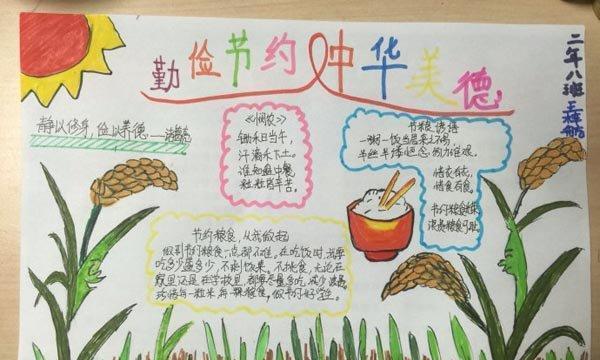 勤俭节约中华美德
二年八班
静以修身,俭以养德——诸葛亮
《悯农》
锄禾日当午,
汗滴禾下土。
谁知盘中餐
粒粒皆辛苦。
节粮 谚语
一粥一饭当思来之不易,
半丝半缕恒念物力维艰。
惜衣有衣,
惜食有食。
节约粮食
浪费粮食可耻
节约粮食,从我做起
做到节约粮食一点都不难。在吃饭时,我要
吃多少盛多少,不剩饭菜,不挑食,无论在
家里还是在学校里,都要尽量多吃,减少浪费
珍惜每一粒米,每一棵粮食,做节约好学生。